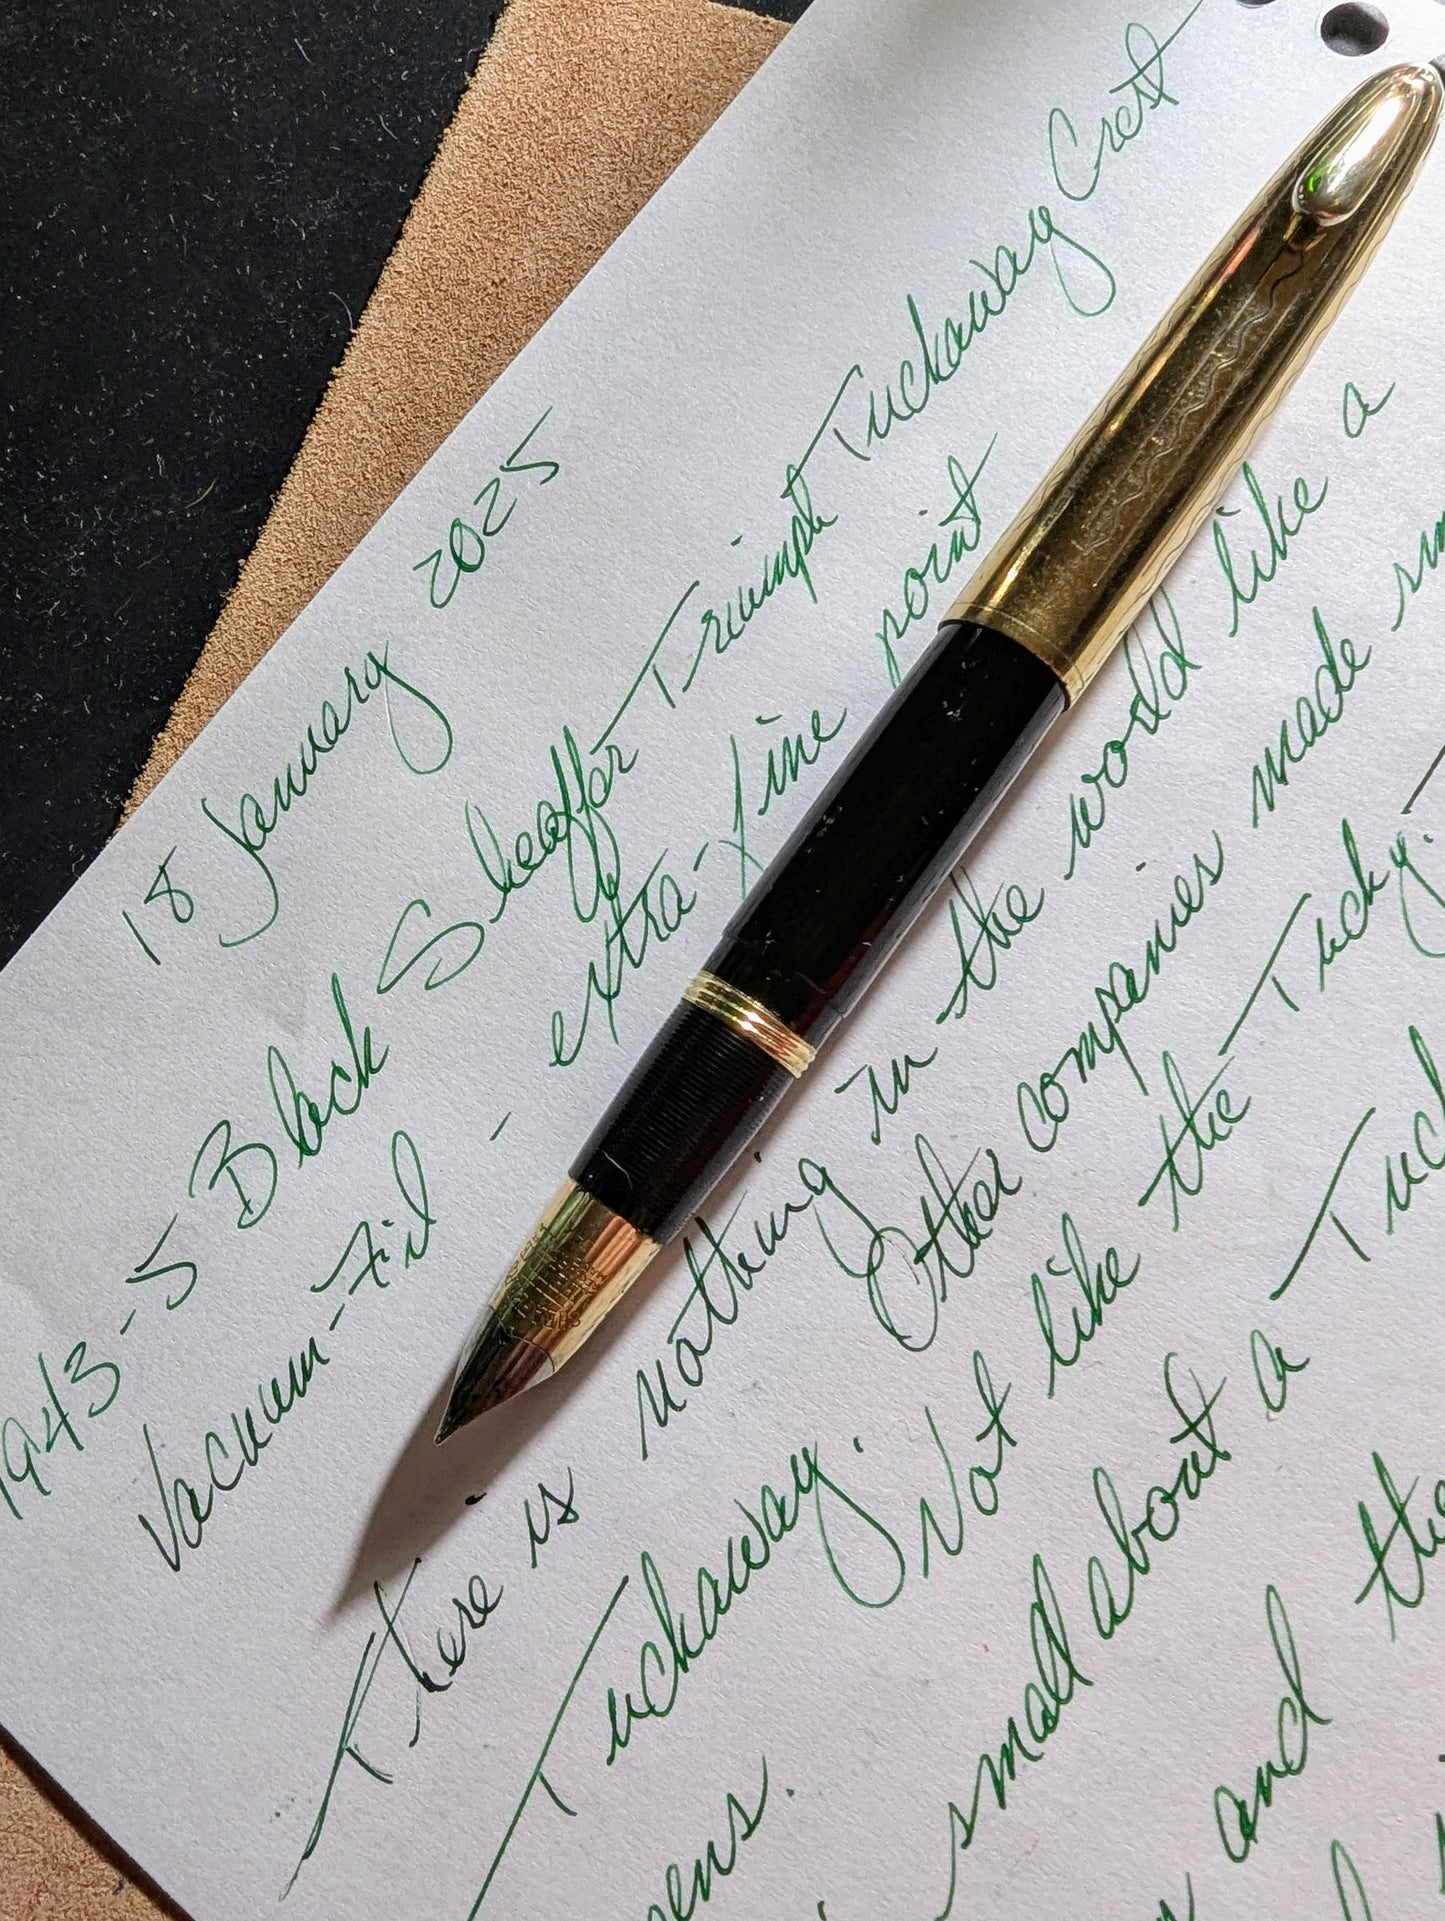 18 January 2025
1943-5 Black Sheaffer Triumph Tuckaway Crest
Vacuum-Fil - extra-fine point
There is nothing in the world like a
Tuckaway. Other companies made sm
pens. Not like the Tucky.
small about a Tuck
and the
SHEAFFER'S